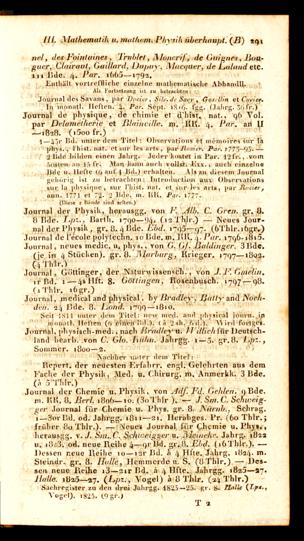 III. Mathematik u. mathem. Physik überhaupt. (B) 291
nel, des Fointaines, Trublet, Moncrif, de Guignes, Bou-
guer, Clairaut, Gaillard, Dupuy, Macquer, de Lalande etc.
111 Bde. 4. Par. 1665—1792.
Enthält vortreffliche einzelne mathematische Abhandll.
Als Fortsetzung ist zu betrachten
Journal des Savans, par
in monatl. Heften. 4. Par. Sept. 1816. fgg. (Jahrg.
Journal de physique, de chimie et d'hist. nat., 96 Vol.
par Delametherie et Blainville. m. KK. 4. Par. an II
—1828. (1500 fr.)
dem Titel: Observations et mémoires sur la
phys., l'hist. nat. et sur les arts, par Rozier. Par.
2 Bde bilden einen Jahrg. Jeder kostet in Par.
kosten Man kann auch vollst. Exx., auch einzelne
Bde u. Hefte erhalten. Als zu diesem Journal
gehörig ist zu betrachten: Introduction aux Observations
sur la physique, sur l'hist. nat. et sur les arts, par Rozier,
ann. 1771 et 72. 2 Bde. m. KK. Par. 1777.
(Diese 2 Bände sind selten.)
Journal der Physik, herausgg. von F. Alb. C. Gren. gr. 8.
8 Bde. Lpz., Barth. 1790—94. (12 Thlr.) — Neues Jour-
nal der Physik, gr. 8. 4 Bde. Ebd. 1795—97. (6Thlr.16gr.)
Journal de l'école polytechn. 10 Bde, m. KK. 4. Par. 1796-1815.
Journal, neues medic. u. phys., von E. Gf. Baldinger. 3 Bde.
(je in 4 Stücken). gr. 8. Marburg, Krieger. 1797—1802.
(3 Thlr.)
Journal, Göttinger, der Naturwissensch., von J. F. Gmelin,
1r Bd. 1—4s Hft. 8. Göttingen, Rosenbusch. 1797—98.
(1 Thlr. 16gr.)
Journal, medical and physical. by Bradley, Batty and Noeh-
den. 24 Bde. 8. Lond. 1799—1810.
Seit 1811 unter dem Titel: new med. and physical journ. in
monatl. Heften Wird fortges.
Journal, physisch-med.; nach Bradley u. Willich für Deutsch-
land bearb. von C. Glo. Kühn. Jahrgg. 1—3. gr. 8. Lpz.,
Sommer. 1800—2.
Nachher unter dem Titel:
Repert. der neuesten Erfahrr. engl. Gelehrten aus dem
Fache der Physik, Med. u. Chirurg. m. Anmerkk. 3 Bde.
(à 3 Thlr.)
Journal der Chemie u. Physik, von Adf. Fd. Gehlen. 9 Bde.
m. KK. 8. Berl. 1806—10. (30 Thlr.) — J. Sm. C. Schweig-
ger Journal für Chemie u. Phys. gr. 8. Nürnb., Schrag.
1—30r Bd. od. Jahrgg. 1811—21. Herabges. Pr. (60 Thlr.;
früher 80 Thlr.). — Neues Journal für Chemie u. Phys.,
herausgg. v. J. Sm. C. Schweigger u. Meineke. Jahrg. 1822
u. 1823, od. neue Reihe bd, gr. 8. Ebd. (16 Thlr.). —
Dessen neue Reihe 10—12r Bd. à 4 Hfte, Jahrg. 1824. m.
Steindr. gr. 8. Halle, Hemmerde u. S. (8 Thlr.) — Des-
sen neue Reihe 13—21r Bd. à 4 Hfte, Jahrgg. 1825—27.
Halle. 1825—27. (Lpz., Vogel) à 8 Thlr. (24 Thlr.)
Sachregister zu den drei Jahrgg. 8. Halle (Lpz.,
Vogel). 1825. (9 gr.)
T 2